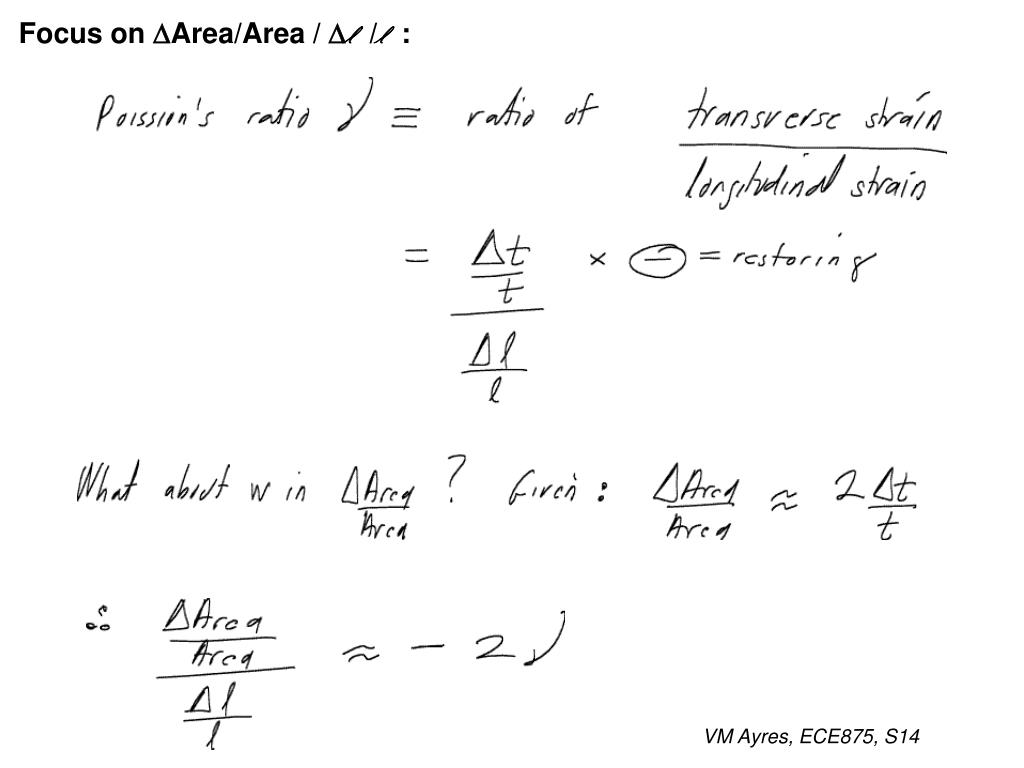 Focus on ΔArea/Area / Δℓ /ℓ :
Poission's ratio ν ≡ ratio of transverse strain / longitudinal strain
= (Δt/t) / (Δl/l) × ⊖ = restoring
What about w in ΔArea/Area ? Given : ΔArea/Area ≈ 2 Δt/t
∴ (ΔArea/Area) / (Δl/l) ≈ - 2ν
VM Ayres, ECE875, S14